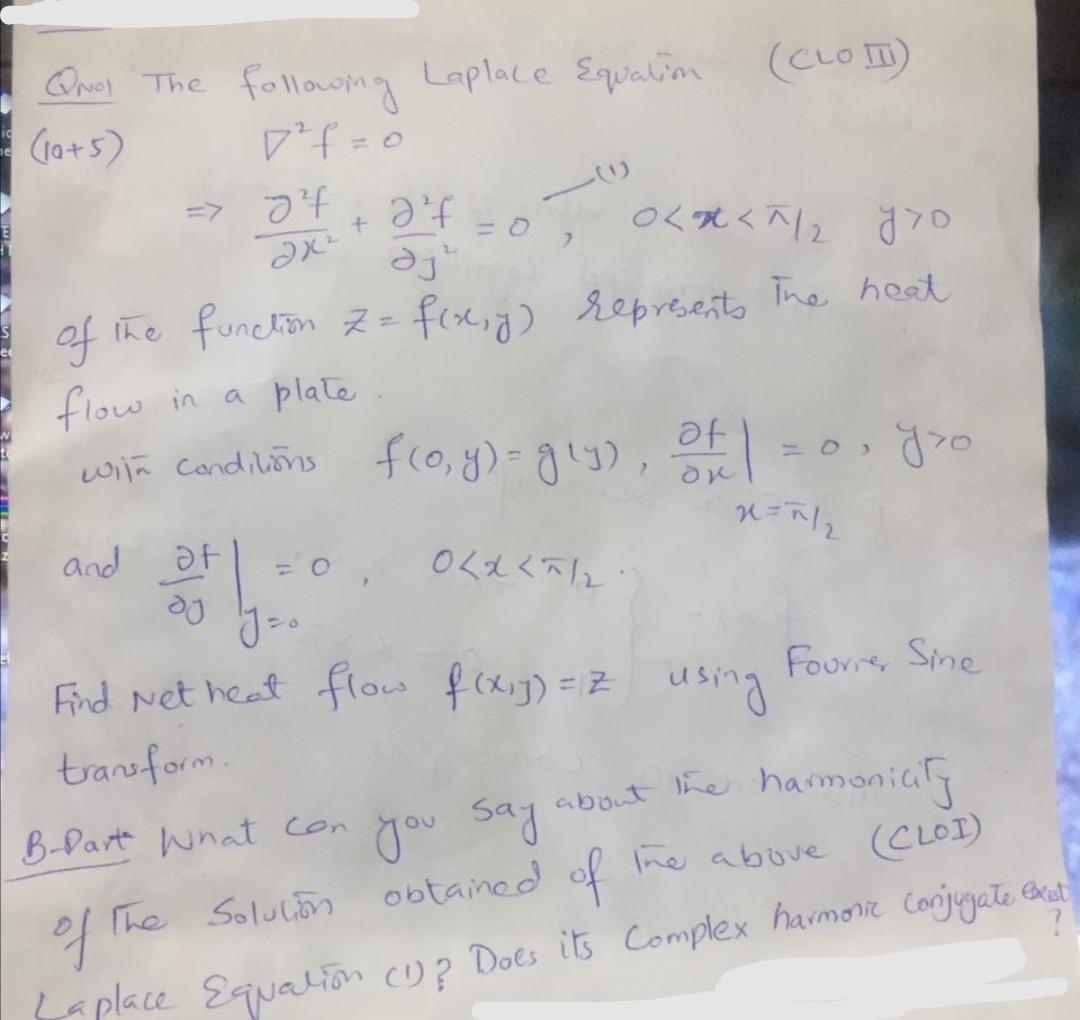 QNo1 The following Laplace Equation (CLO III)
(10+5) ∇²f = 0
=> ∂²f/∂x² + ∂²f/∂y² = 0 —(1), 0<x<π/2 y>0
of the function z = f(x,y) represents the heat
flow in a plate.
with conditions f(0,y) = g(y), ∂f/∂x |x=π/2 = 0, y>0
and ∂f/∂y |y=0 = 0, 0<x<π/2.
Find Net heat flow f(x,y) = z using Fourier Sine
transform.
B-Part What can you say about the harmonicity
of The Solution obtained of the above (CLOI)
Laplace Equation (1)? Does its Complex harmonic Conjugate Exist?